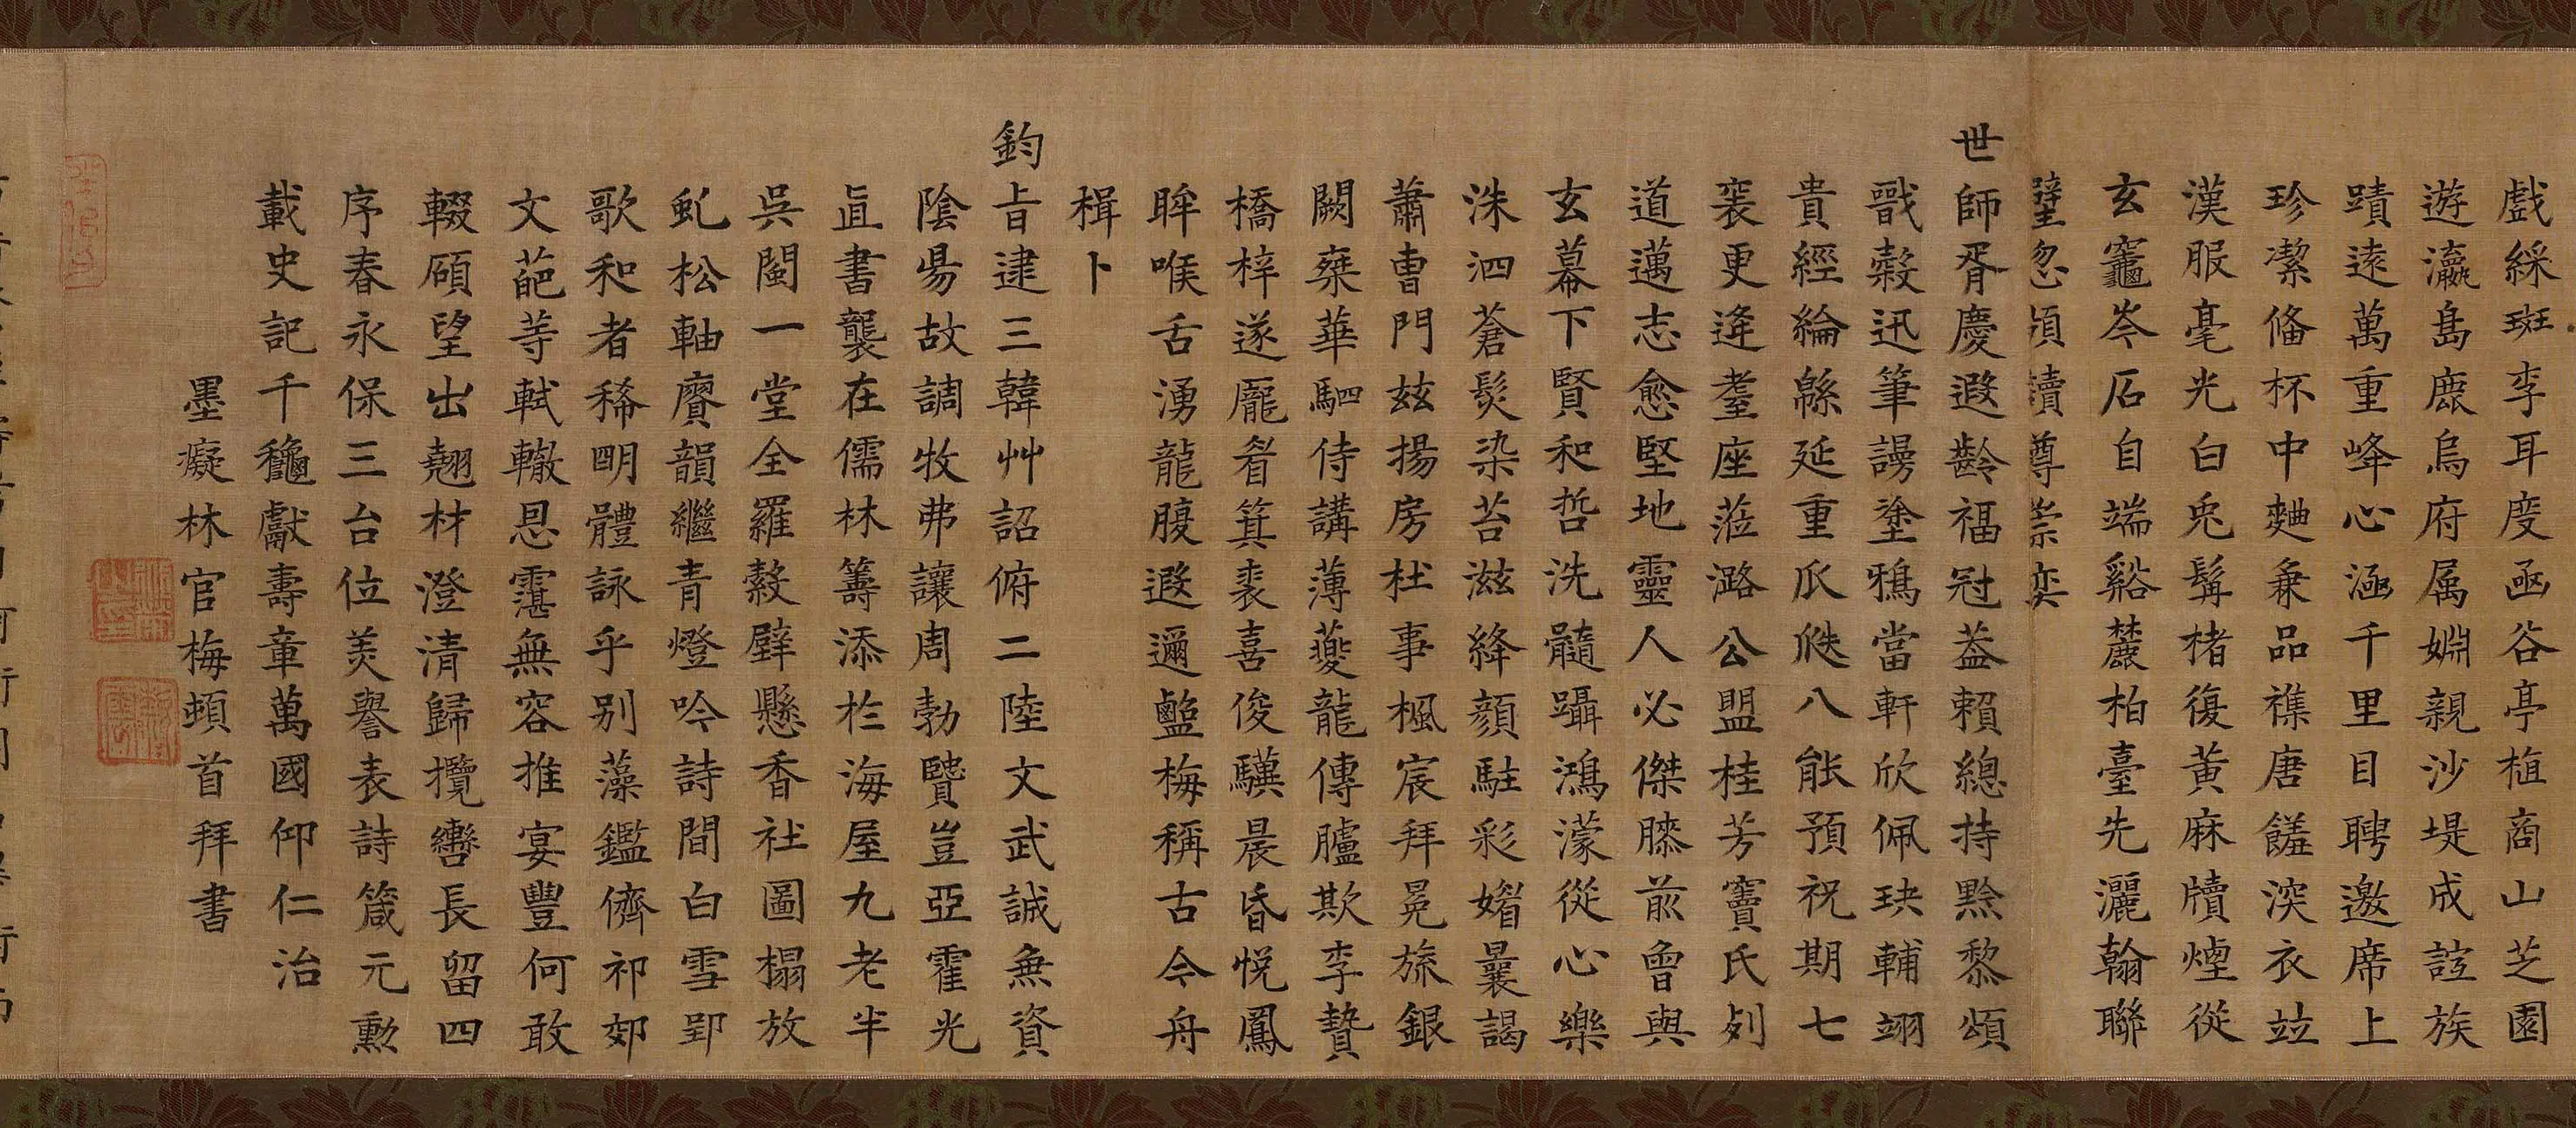 戲綵斑李耳度函谷亭植商山芝園
遊瀛島鹿烏府属婣親沙堤成誼族
蹟遠萬重峰心涵千里目聘邀席上
珍潔俻杯中麯兼品襍唐饈深衣竝
漢服毫光白兎髯楮復黃麻牘煙從
玄竈岑石自端谿麓柏臺先灑翰聯
璧忽頃續尊崇奕
世師胥慶遐齡福冠蓋賴總持黔黎頌
戩穀迅筆謾塗鴉當軒欣佩玦輔翊
貴經綸緜延重瓜瓞八能預祝期七
裘更逢耋座蒞潞公盟桂芳竇氏列
道邁志愈堅地靈人必傑牓前會與
玄幕下賢和哲洗髓躡鴻濛從心樂
洙泗蒼髮染苔滋絳顏駐彩婚曩謁
蕭曹門茲揚房杜事楓宸拜冕旒銀
闕蕐華駟侍講薄夔龍傳臚欺李贄
橋梓遂龐眉箕裘喜俊驥晨昏悅鳳
眸喉舌湧龍腹遐邇鹽梅稱古今舟
楫卜
鈞旨逮三韓艸詔俯二陸文武誠無資
陰昜故調牧弗讓周勃贒豈亞霍光
直書襲在儒林籌添於海屋九老半
吳閩一堂全羅縠壁懸香社圖榻放
虬松軸賡韻繼青燈吟詩間白雪郢
歌和者稀明體詠乎別藻鑑儕祁郊
文葩等軾轍恩霮無容推宴豐何敢
輟碩望出翹材澄清歸攬轡長留四
序春永保三台位羙譽表詩箴元勲
載史記千龝獻壽章萬國仰仁治
墨癡林官梅頓首拜書